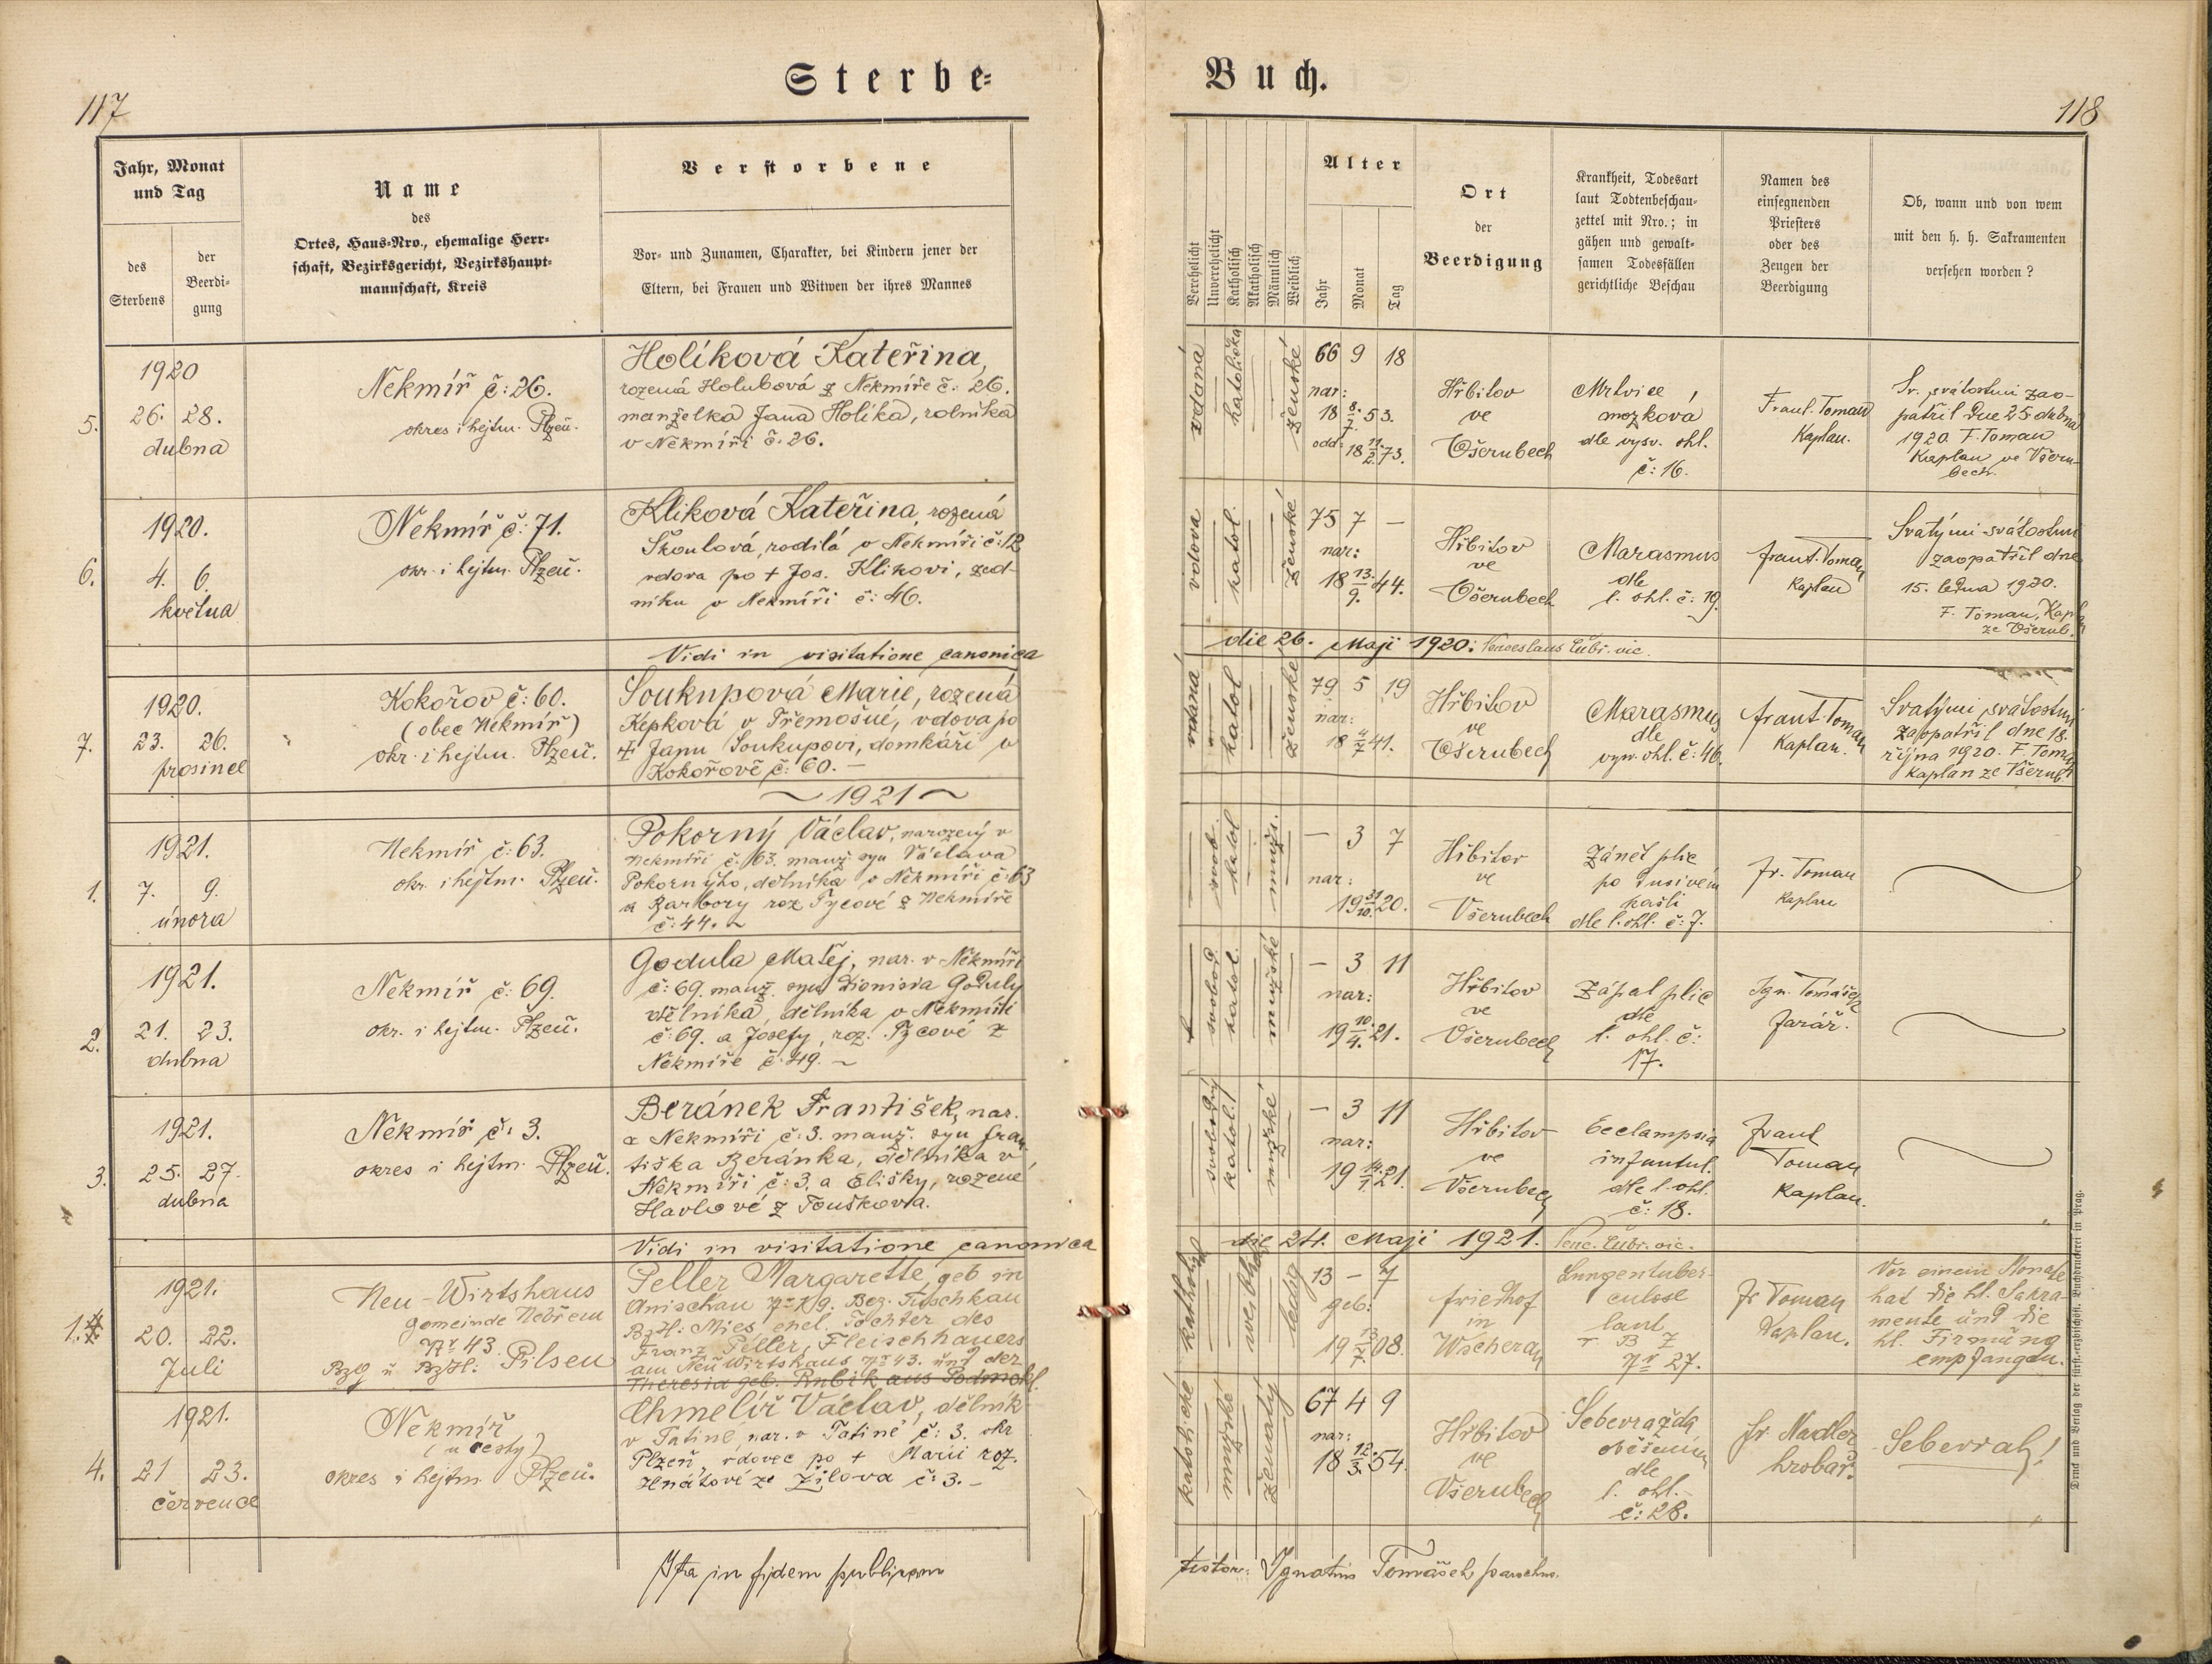 117
Sterbe-
Jahr, Monat
und Tag
des
Sterbens
der
Beerdi-
gung
Name
des
Ortes, Haus-Nro., ehemalige Herr-
schaft, Bezirksgericht, Bezirkshaupt-
mannschaft, Kreis
Verstorbene
Vor- und Zunamen, Charakter, bei Kindern jener der
Eltern, bei Frauen und Witwen der ihres Mannes
5.
1920
26. 28.
dubna
Nekmíř č: 26.
okres i hejtm. Plzeň.
Holíková Kateřina,
rozená Holubová z Nekmíře č. 26.
manželka Jana Holíka, rolníka
v Nekmíři č. 26.
6.
1920.
4. 6.
května
Nekmíř č: 71.
okr. i hejtm. Plzeň.
Klíková Kateřina, rozená
Škoulová, rodilá v Nekmíři č: 12
vdova po + Jos. Klikovi, zed-
níku v Nekmíři č: 46.
Vidi in visitatione canonica
7.
1920.
23. 26.
prosince
Kokořov č: 60.
(obec Nekmíř)
okr. i hejtm. Plzeň.
Soukupová Marie, rozená
Kepková v Třemošné, vdova po
+ Janu Soukupovi, domkáři v
Kokořově č: 60. –
~ 1921 ~
1.
1921.
7. 9.
února
Nekmíř č: 63.
okr. i hejtm. Plzeň.
Pokorný Václav, narozený v
Nekmíři č. 63. manž. syn Václava
Pokorného, dělníka v Nekmíři č: 63
a Barbory roz. Tycové z Nekmíře
č: 44. ~
2.
1921.
21. 23.
dubna
Nekmíř č: 69.
okr. i hejtm. Plzeň.
Godula Matěj, nar. v Nekmíři
č: 69. manž. syn Dionisia Goduly
dělníka, dělníka v Nekmíři
č: 69. a Josefy, roz. Tycové z
Nekmíře č. 49. ~
3.
1921.
25. 27.
dubna
Nekmíř č: 3.
okres i hejtm. Plzeň.
Beránek František, nar.
v Nekmíři č: 3. manž. syn Fran-
tiška Beránka, dělníka v
Nekmíři č: 3. a Elišky, rozené
Havlové z Touškova.
Vidi in visitatione canonica
1.
1921.
20. 22.
Juli
Neu-Wirtshaus
Gemeinde Nebřem
Nr 43
Bzg u Bzhl: Pilsen
Peller Margarette, geb in
Anischau Nr 19. Bez. Tuschkau
Bzhl: Mies, ehel. Tochter des
Franz Peller, Fleischhauers
am Neu Wirtshaus Nr 43. und der
Theresia geb. Rubik aus Podmokl.
4.
1921.
21 23.
července
Nekmíř
(u cesty)
okres i hejtm. Plzeň.
Chmelíř Václav, dělník
v Tatiné, nar. v Tatiné č: 3. okr
Plzeň, vdovec po + Marii roz.
Hnátové ze Žilova č: 3. –
Ita in fidem publicam
Buch.
118
Verehelicht
Unverehelicht
Katholisch
Akatholisch
Männlich
Weiblich
Alter
Jahr
Monat
Tag
Ort
der
Beerdigung
Krankheit, Todesart
laut Todtenbeschau-
zettel mit Nro.; in
gähen und gewalt-
samen Todesfällen
gerichtliche Beschau
Namen des
einsegnenden
Priesters
oder des
Zeugen der
Beerdigung
Ob, wann und von wem
mit den h. h. Sakramenten
versehen worden?
vdaná
katolička
ženské
66 9 18
nar:
18 8/7. 53.
odd: 18 11/2. 73.
Hřbitov
ve
Všerubech
Mrtvice
mozková
dle vysv. ohl.
č: 16.
Frant. Toman
Kaplan.
Sv. svátostmi zao-
patřil dne 25 dubna
1920. F. Toman
Kaplan ve Všeru-
bech.
vdova
katol.
ženské
75 7 –
nar:
18 13./9. 44.
Hřbitov
ve
Všerubech
Marasmus
dle
l. ohl. č: 19.
Frant. Toman
Kaplan
Svatými svátostmi
zaopatřil dne
15. ledna 1920.
F. Toman, Kaplan
ze Všerub.
die 26. Maji 1920: Venceslaus Cubr. vic.
vdaná
katol
ženské
79 5 19
nar:
18 4/7 41.
Hřbitov
ve
Všerubech
Marasmus
dle
vysv. ohl. č: 46.
Frant. Toman
Kaplan.
Svatými svátostmi
zaopatřil dne 18.
října 1920. F. Toman
Kaplan ze Všerub
svob.
katol
mužs.
– 3 7
nar:
19 31/10. 20.
Hřbitov
ve
Všerubech
Zánět plic
po dusivém
kašli
dle l. ohl. č: 7.
Fr. Toman
Kaplan
svobod.
katol.
mužské
– 3 11
nar:
19 10/4. 21.
Hřbitov
ve
Všerubech
Zápal plic
dle
l. ohl. č:
17.
Ign. Tomášek
farář.
svobodný
katol.
mužské
– 3 11
nar:
19 14./1. 21.
Hřbitov
ve
Všerubech
Eclampsia
infantul.
dle l. ohl.
č: 18.
Frant
Toman
Kaplan.
die 24. Maji 1921. Venc. Cubr. vic.
katholisch
weiblich
ledig
13 – 7
geb:
19 13/7. 08.
Friedhof
in
Wscherau
Lungentuber-
culose
laut
T B Z
Nr 27.
Fr Toman
Kaplan.
Vor einem Monate
hat die hl. Sakra-
mente und die
hl. Firmung
empfangen.
katolické
mužské
ženatý
67 4 9
nar:
18 12/3. 54.
Hřbitov
ve
Všerubech
Sebevražda
oběšením
dle
l. ohl.
č: 28.
Fr. Nadler
hrobař.
Sebevrah!
testor: Ignatius Tomášek parochus.
Druck und Verlag der fürst.-erzbischöfl. Buchdruckerei in Prag.